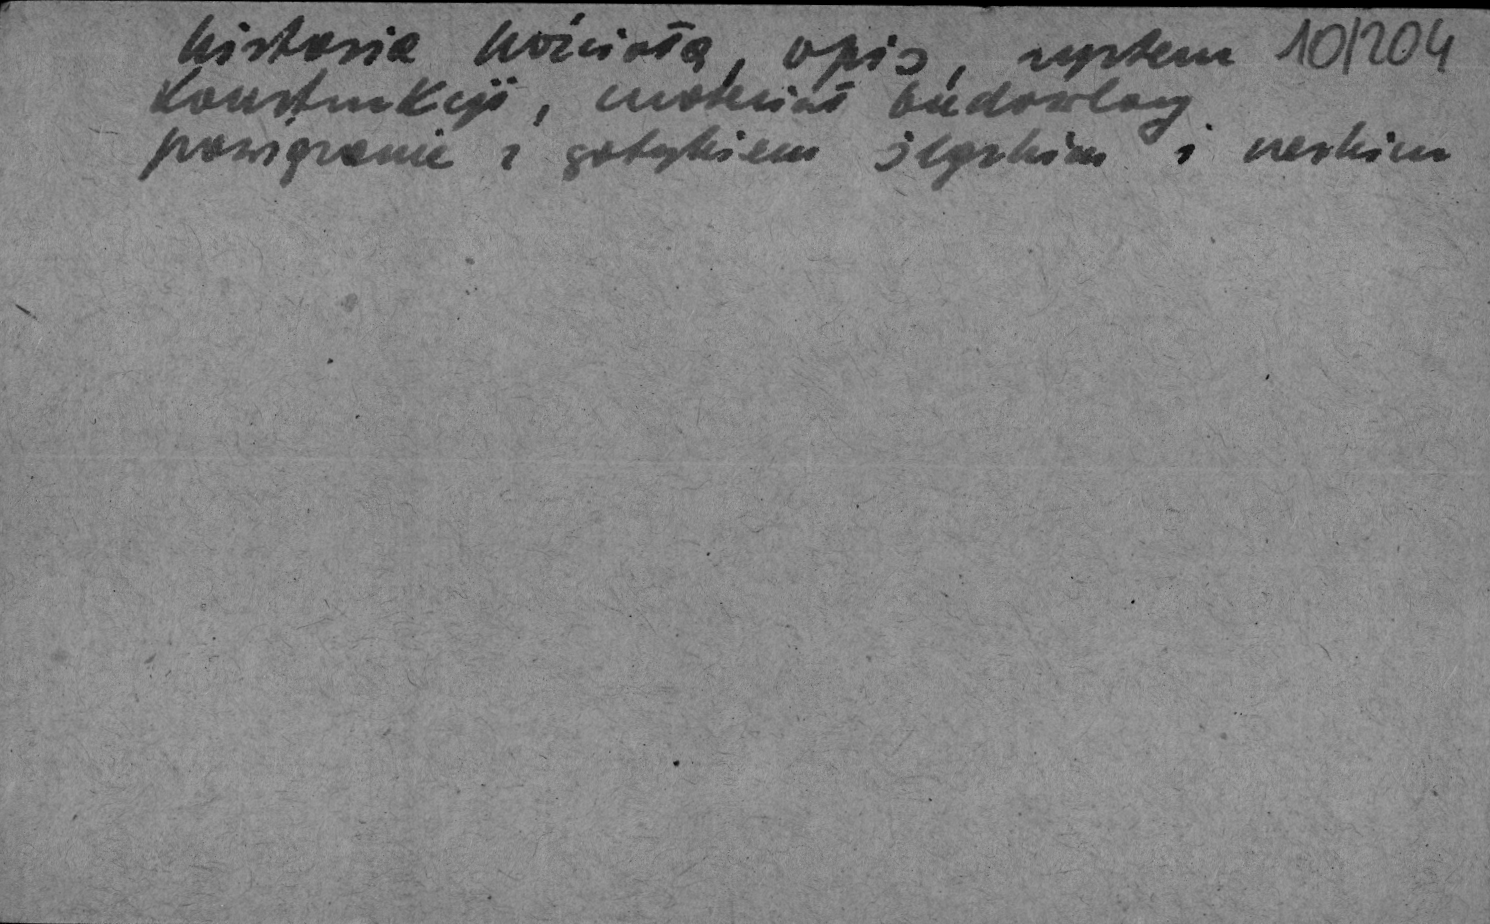 historia kościoła, opis, system 10/204
konstrukcji, materiał budowlany
powiązanie z gotykiem śląskim i heskim